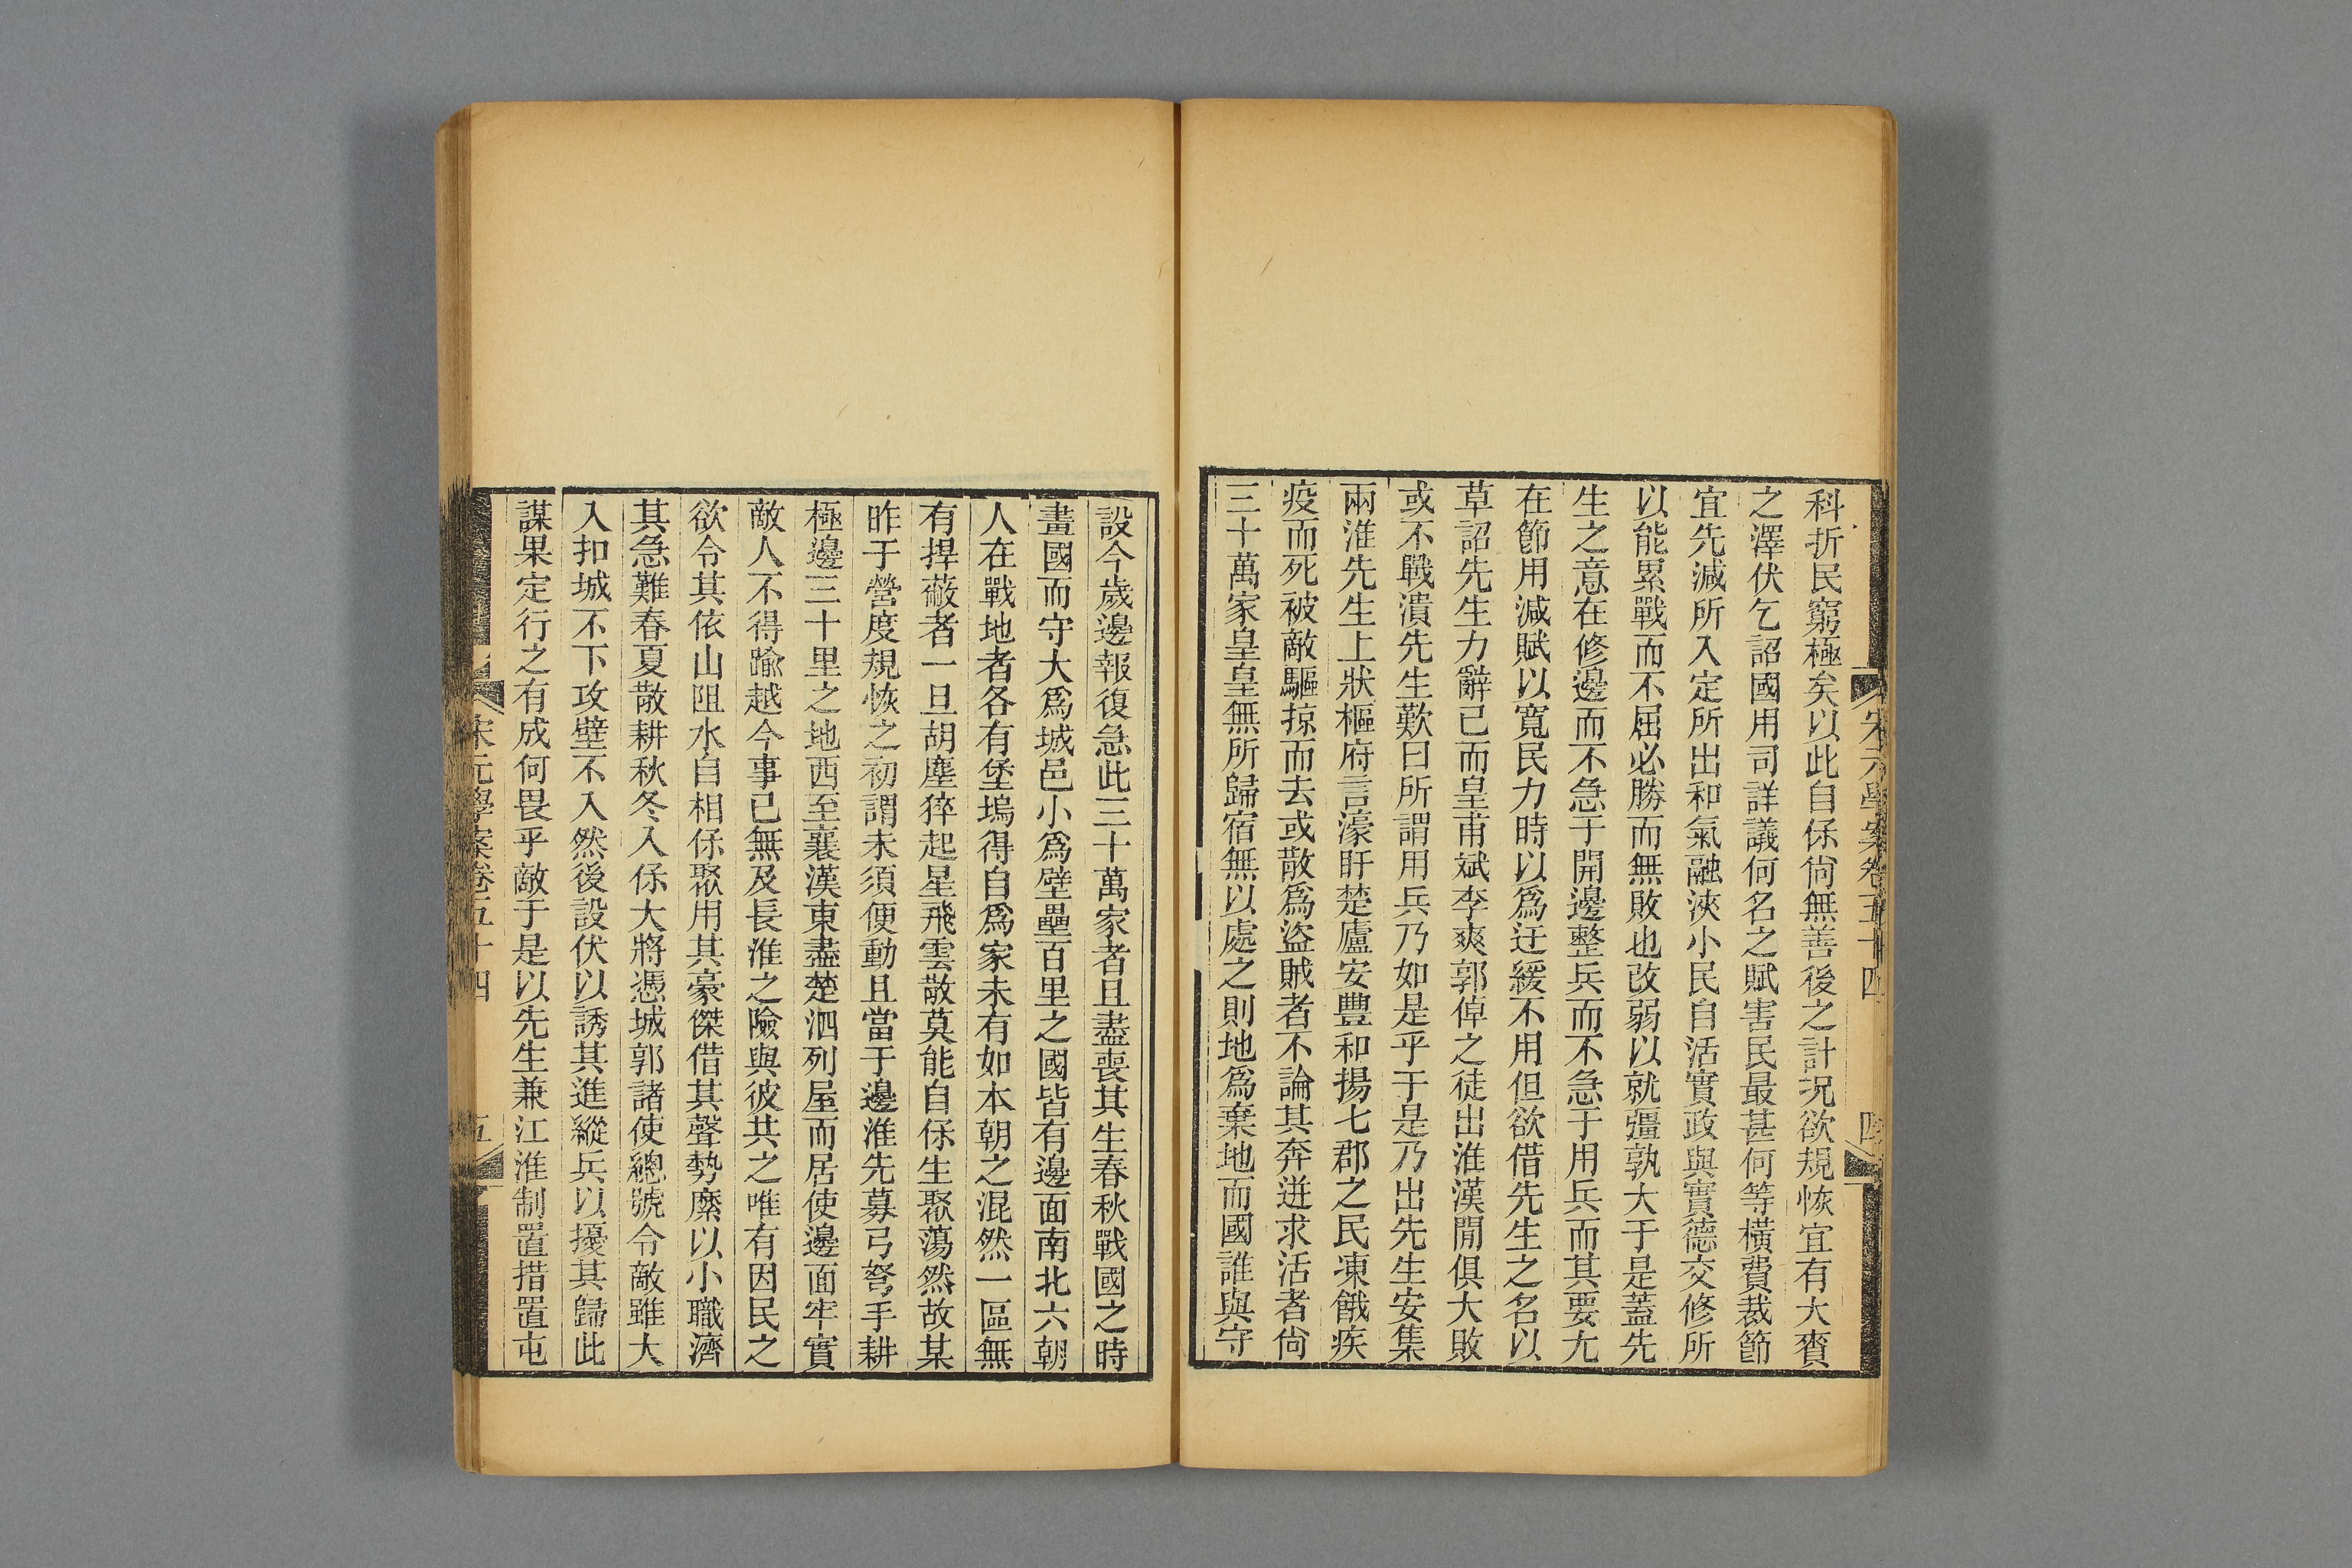 科折民窮極矣以此自保尙無善後之計況欲規恢宜有大賚
之澤伏乞詔國用司詳議何名之賦害民最甚何等橫費裁節
宜先減所入定所出和氣融浹小民自活實政與實德交修所
以能累戰而不屈必勝而無敗也改弱以就彊孰大于是蓋先
生之意在修邊而不急于開邊整兵而不急于用兵而其要尢
在節用減賦以寬民力時以爲迂緩不用但欲借先生之名以
草詔先生力辭已而皇甫斌李爽郭倬之徒出淮漢閒俱大敗
或不戰潰先生歎曰所謂用兵乃如是乎于是乃出先生安集
兩淮先生上狀樞府言濠盱楚廬安豐和揚七郡之民凍餓疾
疫而死被敵驅掠而去或散爲盜賊者不論其奔逬求活者尙
三十萬家皇皇無所歸宿無以處之則地爲棄地而國誰與守
宋元學案卷五十四
四
設今歲邊報復急此三十萬家者且盡喪其生春秋戰國之時
畫國而守大爲城邑小爲壁壘百里之國皆有邊面南北六朝
人在戰地者各有堡塢得自爲家未有如本朝之混然一區無
有捍蔽者一旦胡塵猝起星飛雲散莫能自保生聚蕩然故某
昨于營度規恢之初謂未須便動且當于邊淮先募弓弩手耕
極邊三十里之地西至襄漢東盡楚泗列屋而居使邊面牢實
敵人不得踰越今事已無及長淮之險與彼共之唯有因民之
欲令其依山阻水自相保聚用其豪傑借其聲勢縻以小職濟
其急難春夏散耕秋冬入保大將憑城郭諸使總號令敵雖大
入扣城不下攻壁不入然後設伏以誘其進縱兵以擾其歸此
謀果定行之有成何畏乎敵于是以先生兼江淮制置措置屯
宋元學案卷五十四
五